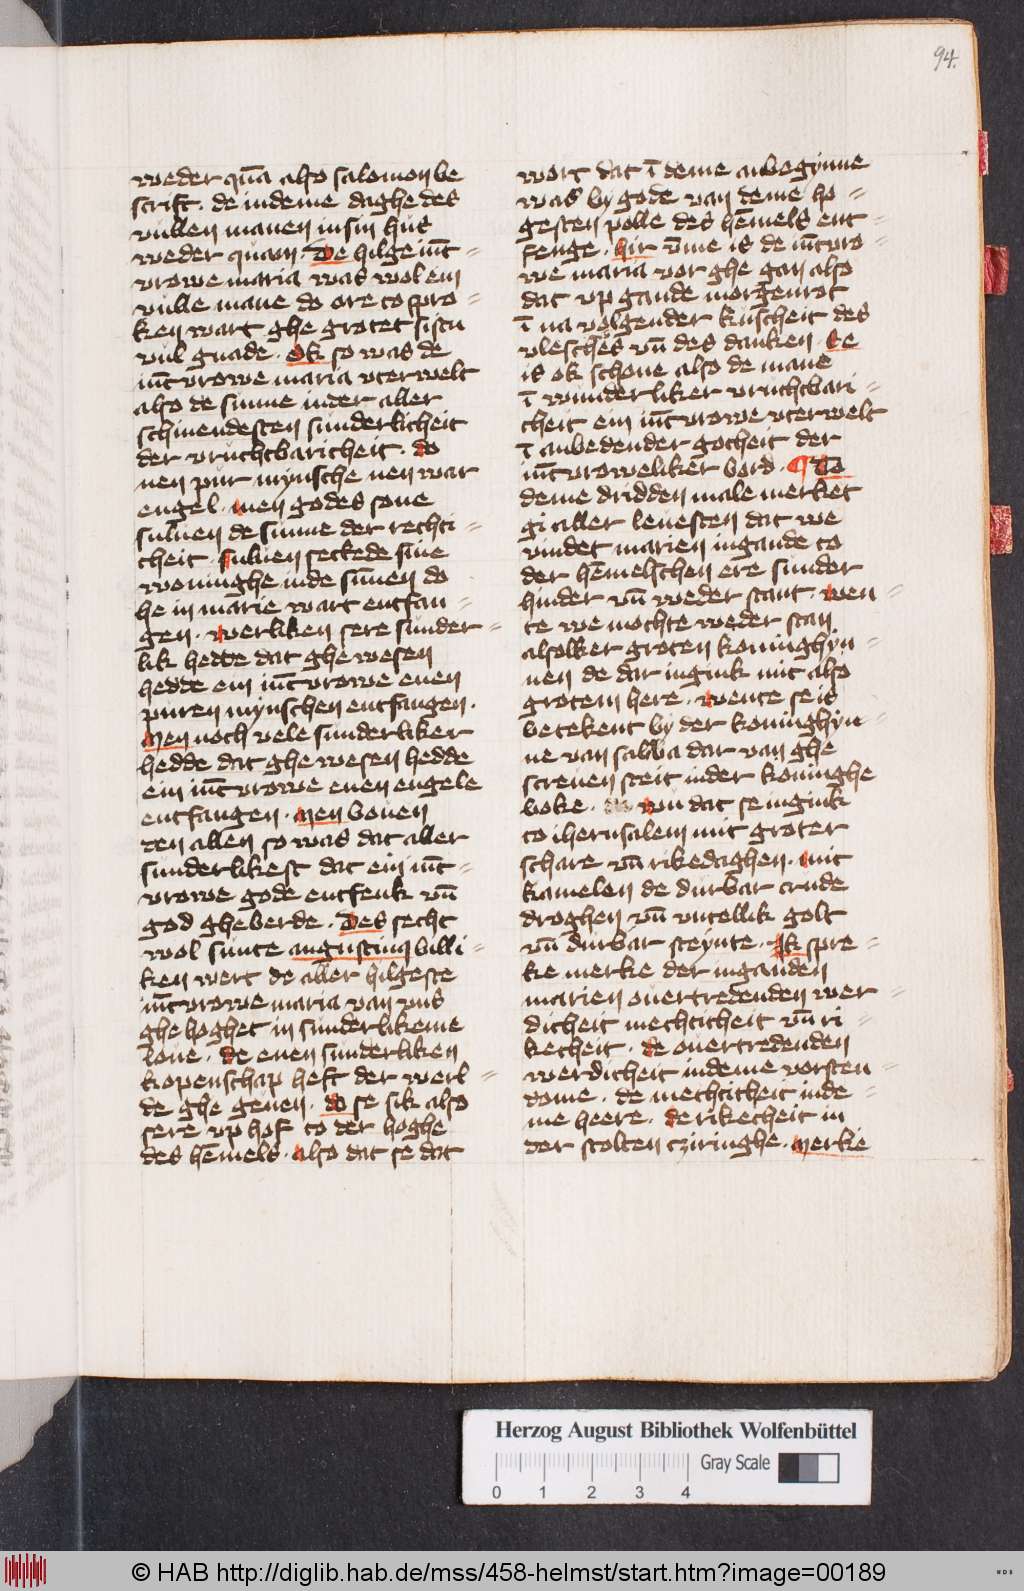 94.
weder quā also salomon be
scrift. de in deme daghe des
vullen manen in sin hus
weder quam. De hilge iūc=
vrowe maria was wol ein
vulle mane do ore to spro=
ken wart ghe grotet sistu
vul gnade. Ok so was de
iūcvrowe maria vterwelt
also de sunne in der aller
schinendesten sunderlicheit
der vruchtbaricheit. do
nen pur mynsche nen war
engel. men godes sone
suluen de sunne der rechti=
cheit. suluen settede sine
woninghe in de sūnen do
he in marie wart entfan=
gen. werliken sere sunder=
lik hedde dat ghe wesen
hedde ein iūcvrowe enen
puren mynschen entfangen.
Men noch vele sunderliker
hedde dat ghe wesen hedde
ein iūcvrowe enen engele
entfangen. Men bouen
den allen so was dat aller
sunderlikest dat ein iūc=
vrowe gode entfenk vn̄
god gheberde. Des secht
wol sunte augustinus billi=
ken wert de aller hilgeste
iūcvrowe maria van vns
ghe hoghet in sunderlikeme
loue. de enen sunderliken
kopenschap heft der werl=
de ghe geuen. do se sik also
sere vp hof to der hoghe
des hēmels. also dat se dat
wort dat ī deme anbegynne
was by gode van deme ho=
gesten polle des hēmels ent=
fenge. hir vm̄e is de iūcvro=
we maria vor ghe gan also
dat vp gande morgenrot
ī na volgender kuscheit des
vlesches vn̄ des danken. Se
is ok schone also de mane
ī wunderliker vruchtbari=
cheit ein iūcvrowe vterwelt
ī anbedender gotheit der
iūcvroweliker bord. ¶ To
deme dridden male merket
gi aller leuesten dat we
vindet marien in gande to
der hēmelschen ere sunder
hinder vn̄ weder stant. wen=
te we mochte weder stan
alsolker groten koninghyn=
nen de dar in gink mit also
grotem here. wente se is
betekent by der koninghyn=
ne van salba dar van ghe
screuen steit in der koninghe
boke. vn̄ dat se in gink
to iherusalem mit groter
schare vn̄ rikedaghen. mit
kamelen de durbar crude
droghen vn̄ vntellik golt
vn̄ durbar steynte. Ik spre=
ke merke der in ganden
marien ouertredenden wer=
dicheit mechticheit vn̄ ri=
kecheit. de ouertredenden
werdicheit in deme vorsten=
dome. de mechticheit in de=
me heere. de rikecheit in
der stolten cziringhe. Merke
Herzog August Bibliothek Wolfenbüttel
Gray Scale
0 1 2 3 4
© HAB http://diglib.hab.de/mss/458-helmst/start.htm?image=00189